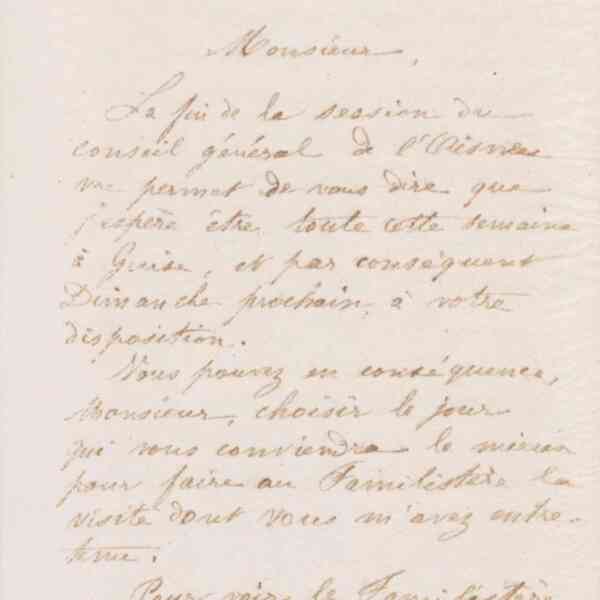 Monsieur,
La fin de la session du
conseil général de l'Aisne
me permet de vous dire que
j'espère être toute cette semaine
à Guise, et par conséquent
Dimanche prochain, à votre
disposition.
Vous pouvez en conséquence,
Monsieur, choisir le jour
qui vous conviendra le mieux
pour faire au Familistère la
visite dont vous m'avez entre-
tenu.
Pour voir le Familistère